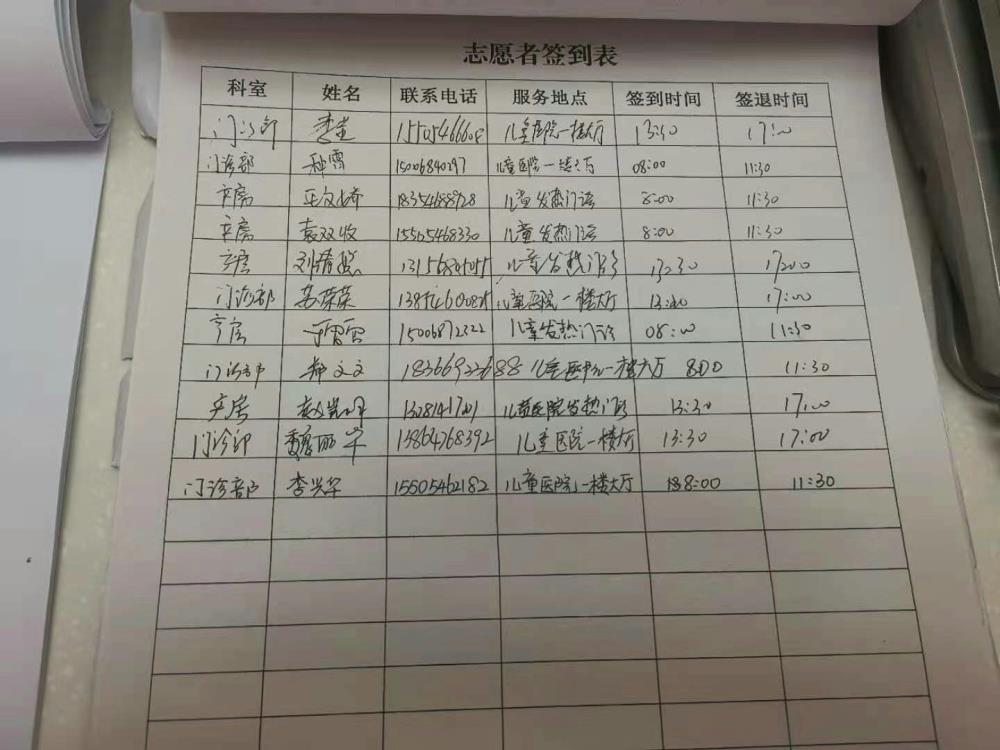 志愿者签到表
科室 姓名 联系电话 服务地点 签到时间 签退时间
门诊部 儿童医院一楼大厅 13:30 17:00
门诊部 种霄 15006840297 儿童医院一楼大厅 08:00 11:30
产房 王文娇 18354688928 儿童发热门诊 8:00 11:30
产房 袁双收 15505468330 儿童发热门诊 8:00 11:30
产房 刘倩 儿童发热门诊 13:30 17:00
门诊部 苏荣荣 儿童医院一楼大厅 13:30 17:00
产房 于雷雷 15006872322 儿童发热门诊 08:00 11:30
门诊部 郑文文 18366922688 儿童医院一楼大厅 8:00 11:30
产房 儿童医院发热门诊 13:30 17:00
门诊部 魏丽 13864768392 儿童医院一楼大厅 13:30 17:00
门诊部 李兴军 15505462182 儿童医院一楼大厅 188:00 11:30